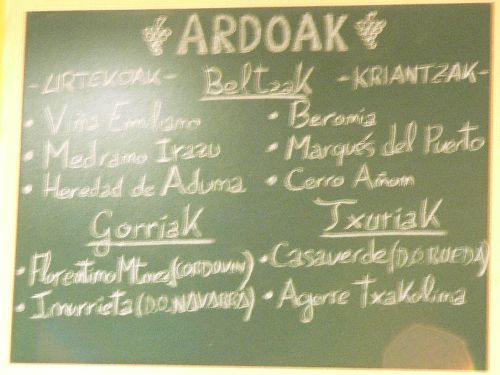 ARDOAK
-URTEKOAK- Beltzak -KRIANTZAK-
• Viña Emiliano • Beronia
• Medrano Irazu • Marqués del Puerto
• Heredad de Aduna • Cerro Añon
Gorriak Txuriak
• Florentino Mtnez (CORDOVIN) • Casaverde (D.O RUEDA)
• Inurrieta (D.O. NAVARRA) • Agerre Txakolina